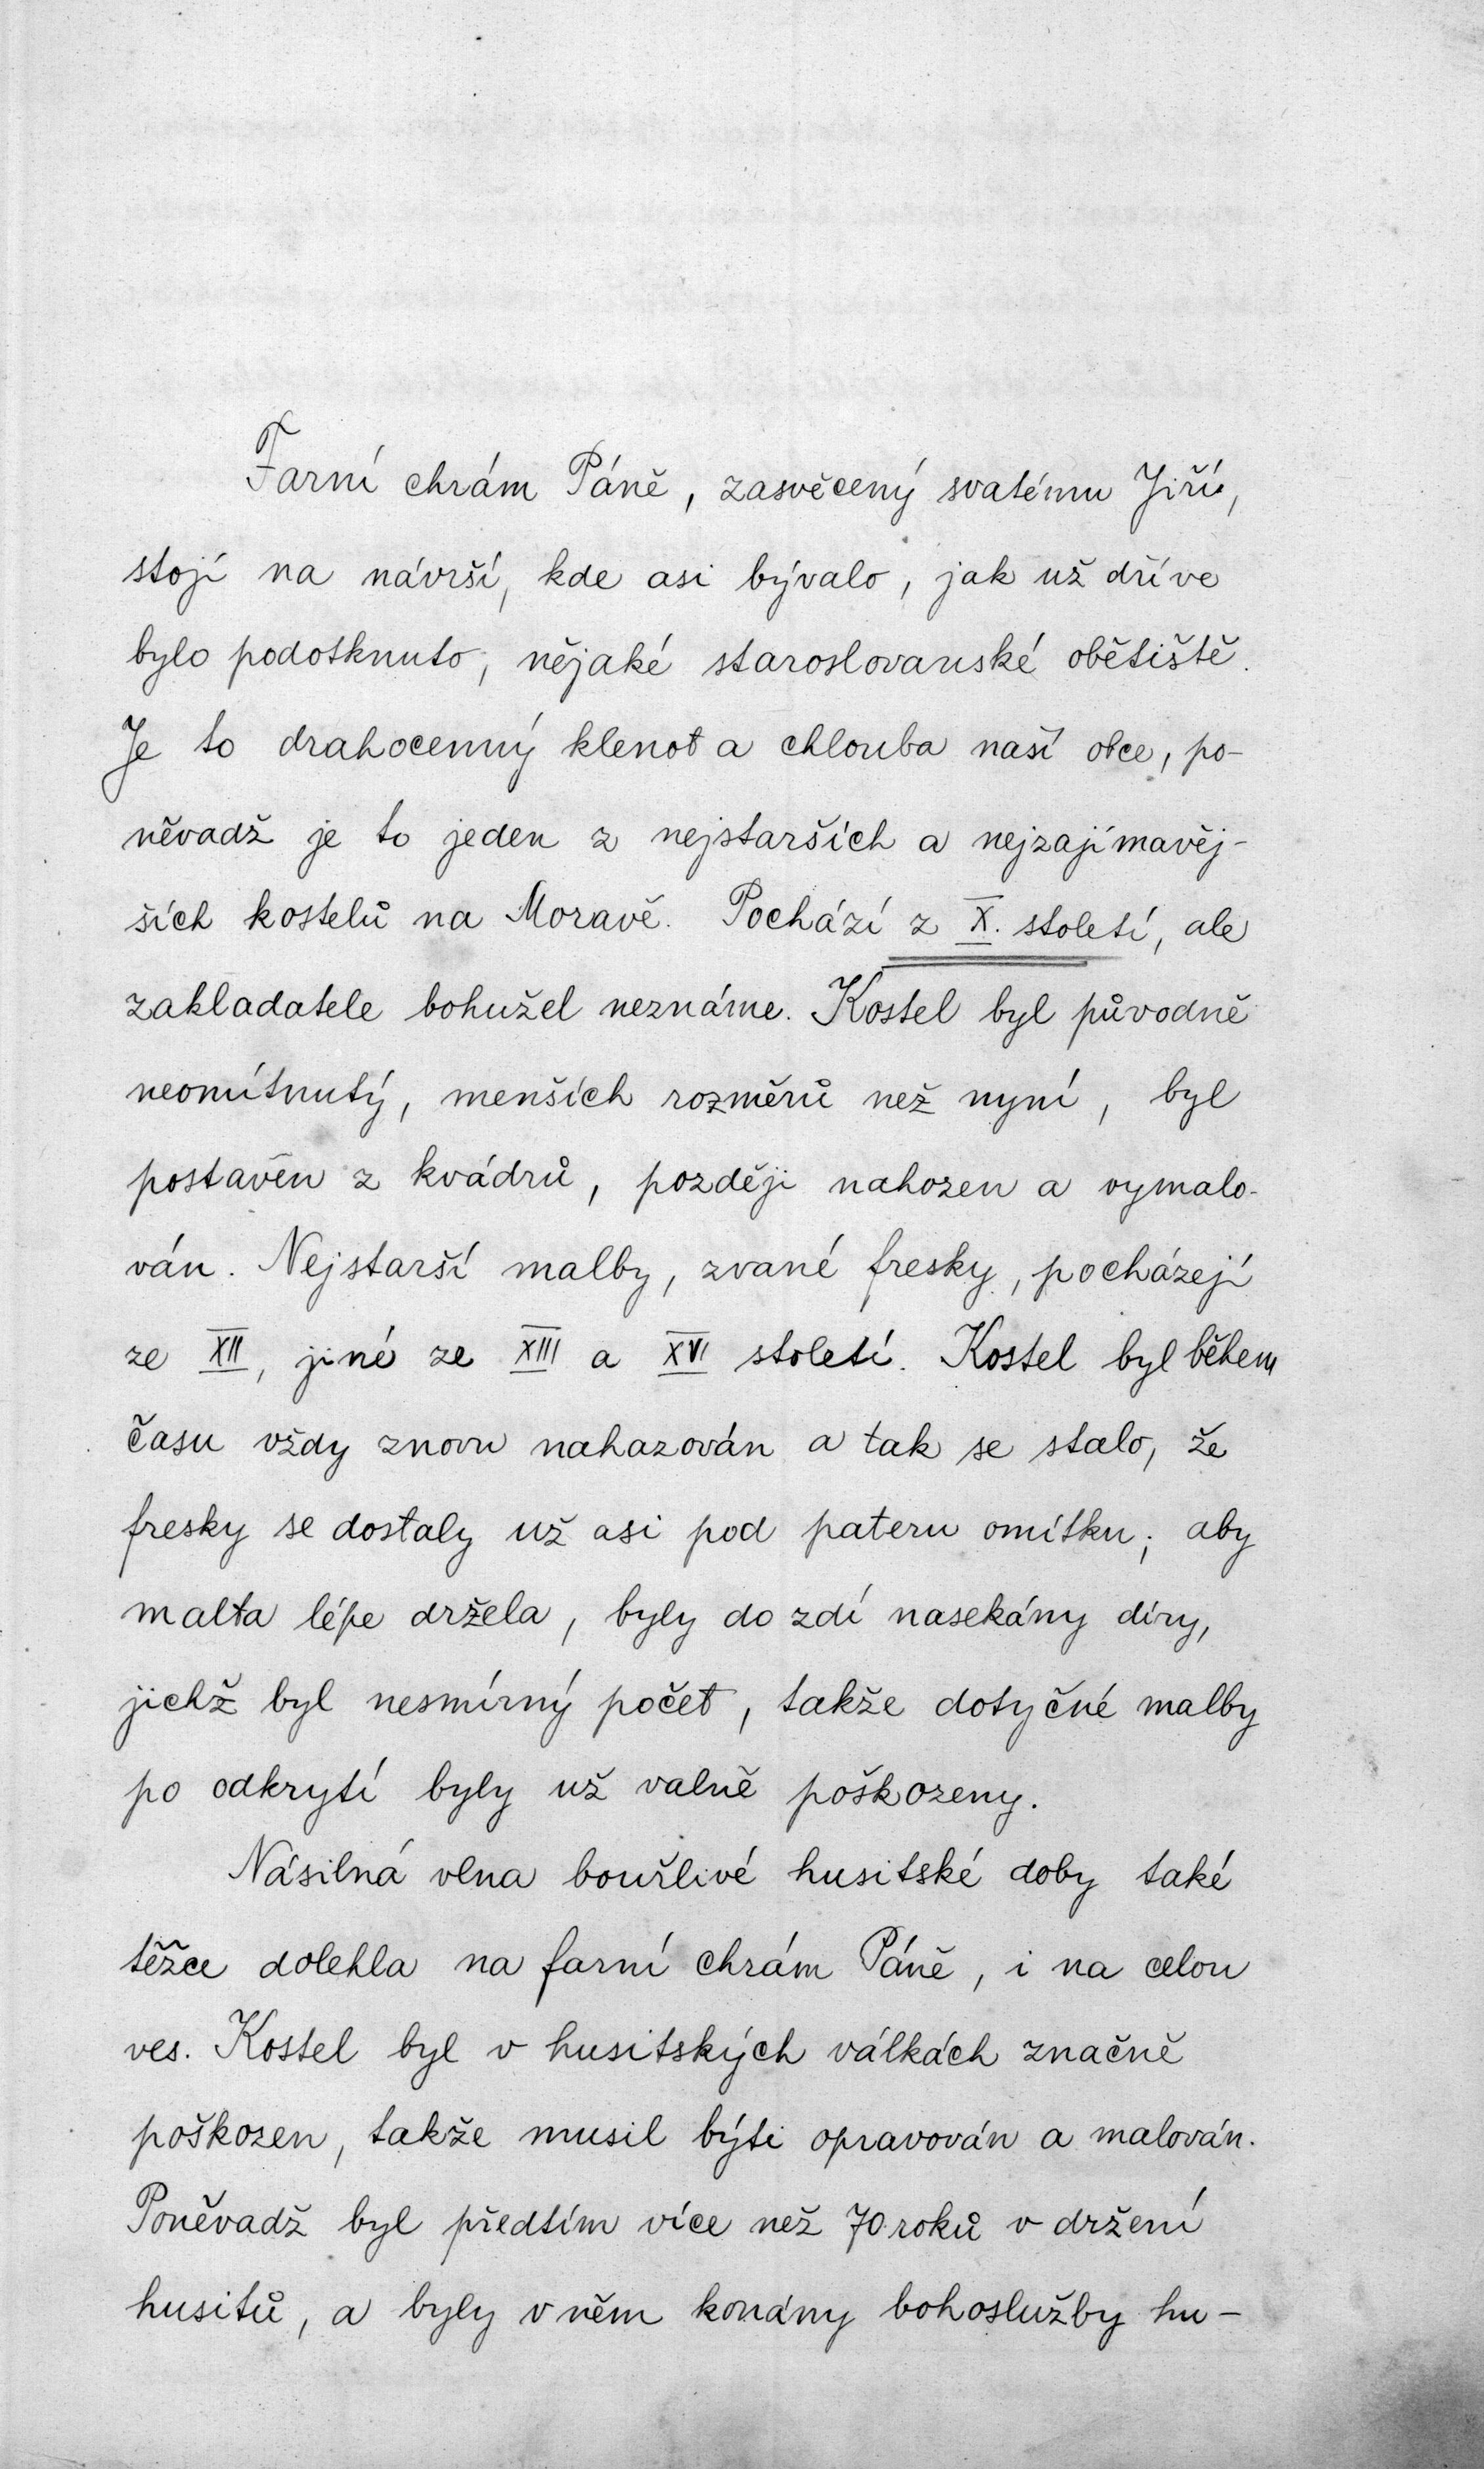 Farní chrám Páně, zasvěcený svatému Jiří,
stojí na návrší, kde asi bývalo, jak už dříve
bylo podotknuto, nějaké staroslovanské obětiště.
Je to drahocenný klenot a chlouba naší obce, po-
něvadž je to jeden z nejstarších a nejzajímavěj-
ších kostelů na Moravě. Pochází z X. století, ale
zakladatele bohužel neznáme. Kostel byl původně
neomítnutý, menších rozměrů než nyní, byl
postaven z kvádrů, později nahozen a vymalo-
ván. Nejstarší malby, zvané fresky, pocházejí
ze XII, jiné ze XIII a XVI století. Kostel byl během
času vždy znovu nahazován a tak se stalo, že
fresky se dostaly už asi pod pateru omítku; aby
malta lépe držela, byly do zdí nasekány díry,
jichž byl nesmírný počet, takže dotyčné malby
po odkrytí byly už valně poškozeny.
Násilná vlna bouřlivé husitské doby také
těžce dolehla na farní chrám Páně, i na celou
ves. Kostel byl v husitských válkách značně
poškozen, takže musil býti opravován a malován.
Poněvadž byl předtím více než 70 roků v držení
husitů, a byly v něm konány bohoslužby hu-